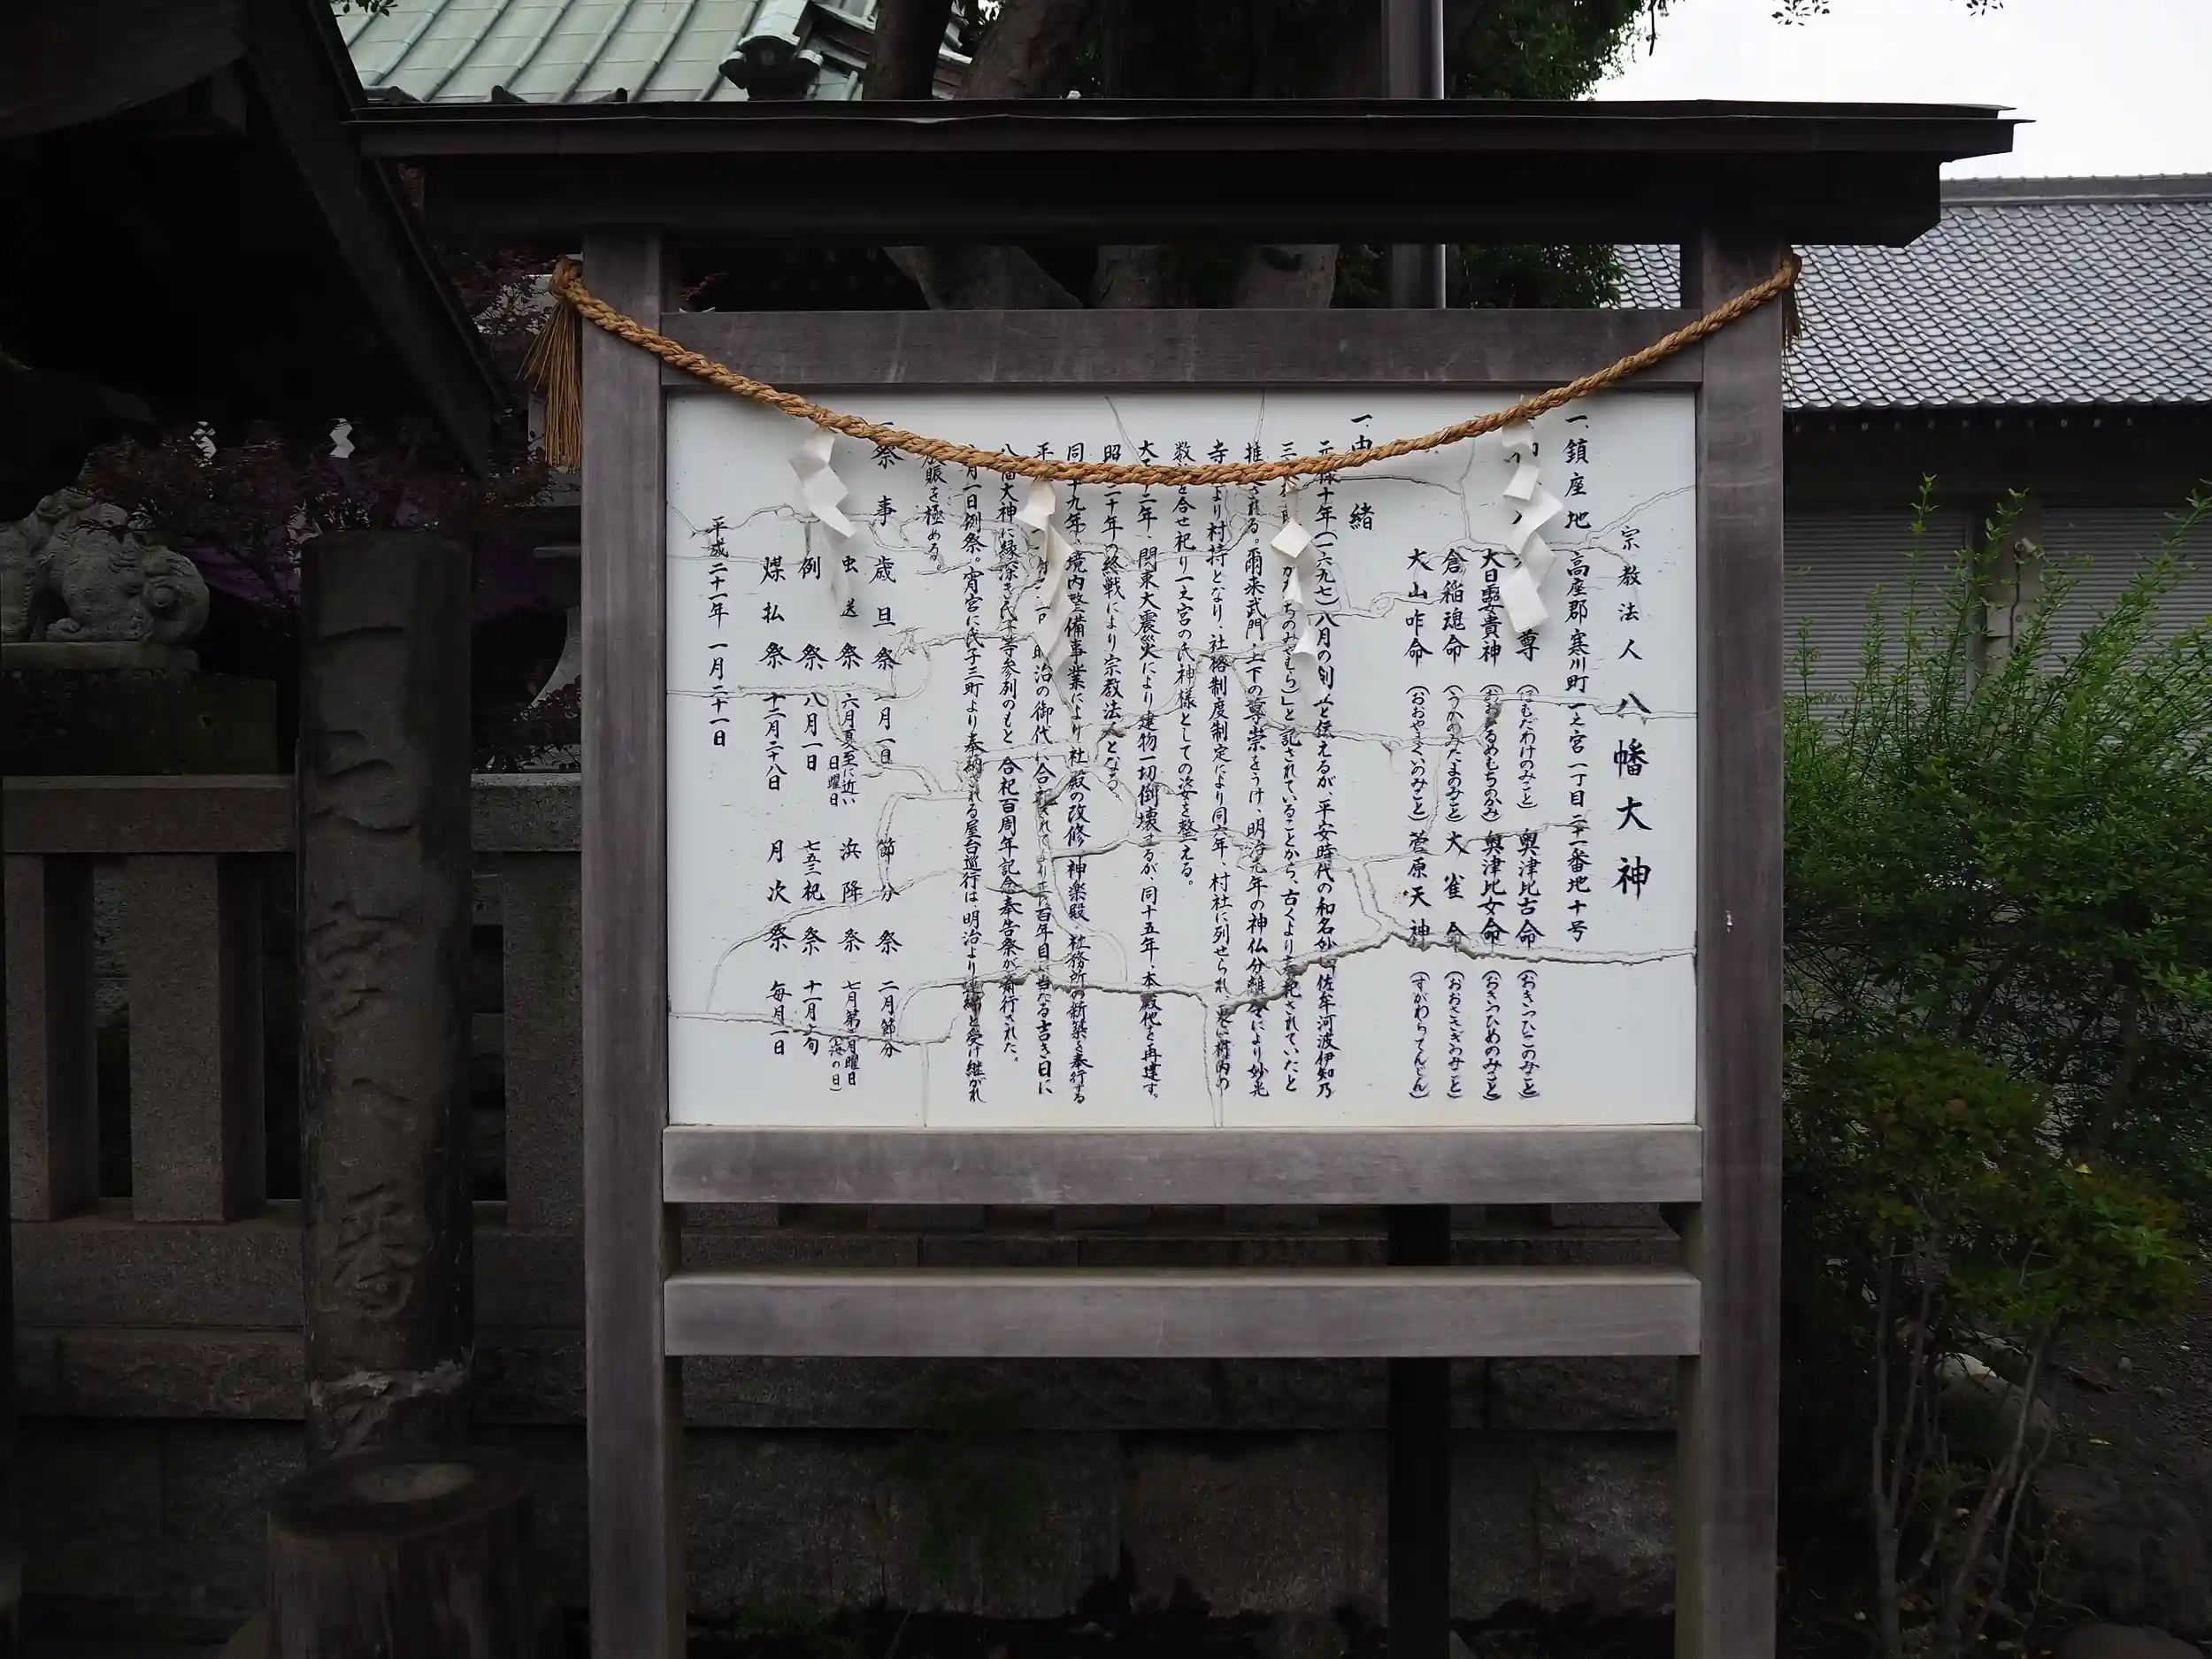 宗教法人 八幡大神
一、鎮座地 高座郡寒川町一之宮一丁目二十一番地十号
尊(ほむたわけのみこと) 奥津比古命(おきつひこのみこと)
大日孁貴神(おおひるめむちのかみ) 奥津比女命(おきつひめのみこと)
倉稲魂命(うかのみたまのみこと) 大雀命(おおささぎのみこと)
大山咋命(おおやまくいのみこと) 菅原天神(すがわらてんじん)
一、由緒
元禄十年(一六九七)八月の創立と伝えるが、平安時代の和名妙に佐牟河波伊知乃
ちのみやむら)」と記されていることから、古くより奉祀されていたと
推される。爾来武門上下の尊崇をうけ、明治元年の神仏分離令により妙光
寺より村持となり、社格制度制定により同六年、村社に列せられ、更に村内の
数社を合せ祀り一之宮の氏神様としての姿を整える。
大正十二年、関東大震災により建物一切倒壊するが、同十五年、本殿他を再建す。
昭和二十年の終戦により宗教法人となる。
同 十九年、境内整備事業により社殿の改修、神楽殿、社務所の新築を奉行する
平 明治の御代に合祀されてより正に百年目に当たる吉き日に
八幡大神に縁深き氏子等参列のもと、合祀百周年記念奉告祭が斎行された。
月一日例祭。宵宮に氏子三町より奉納される屋台巡行は、明治より連綿と受け継がれ
賑を極める。
祭事 歳旦祭 一月一日 節分祭 二月節分
虫送祭 六月夏至に近い日曜日 浜降祭 七月第三月曜日(海の日)
例祭 八月一日 七五三祀祭 十一月上旬
煤払祭 十二月二十八日 月次祭 毎月一日
平成二十一年 一月二十一日
一之宮八番